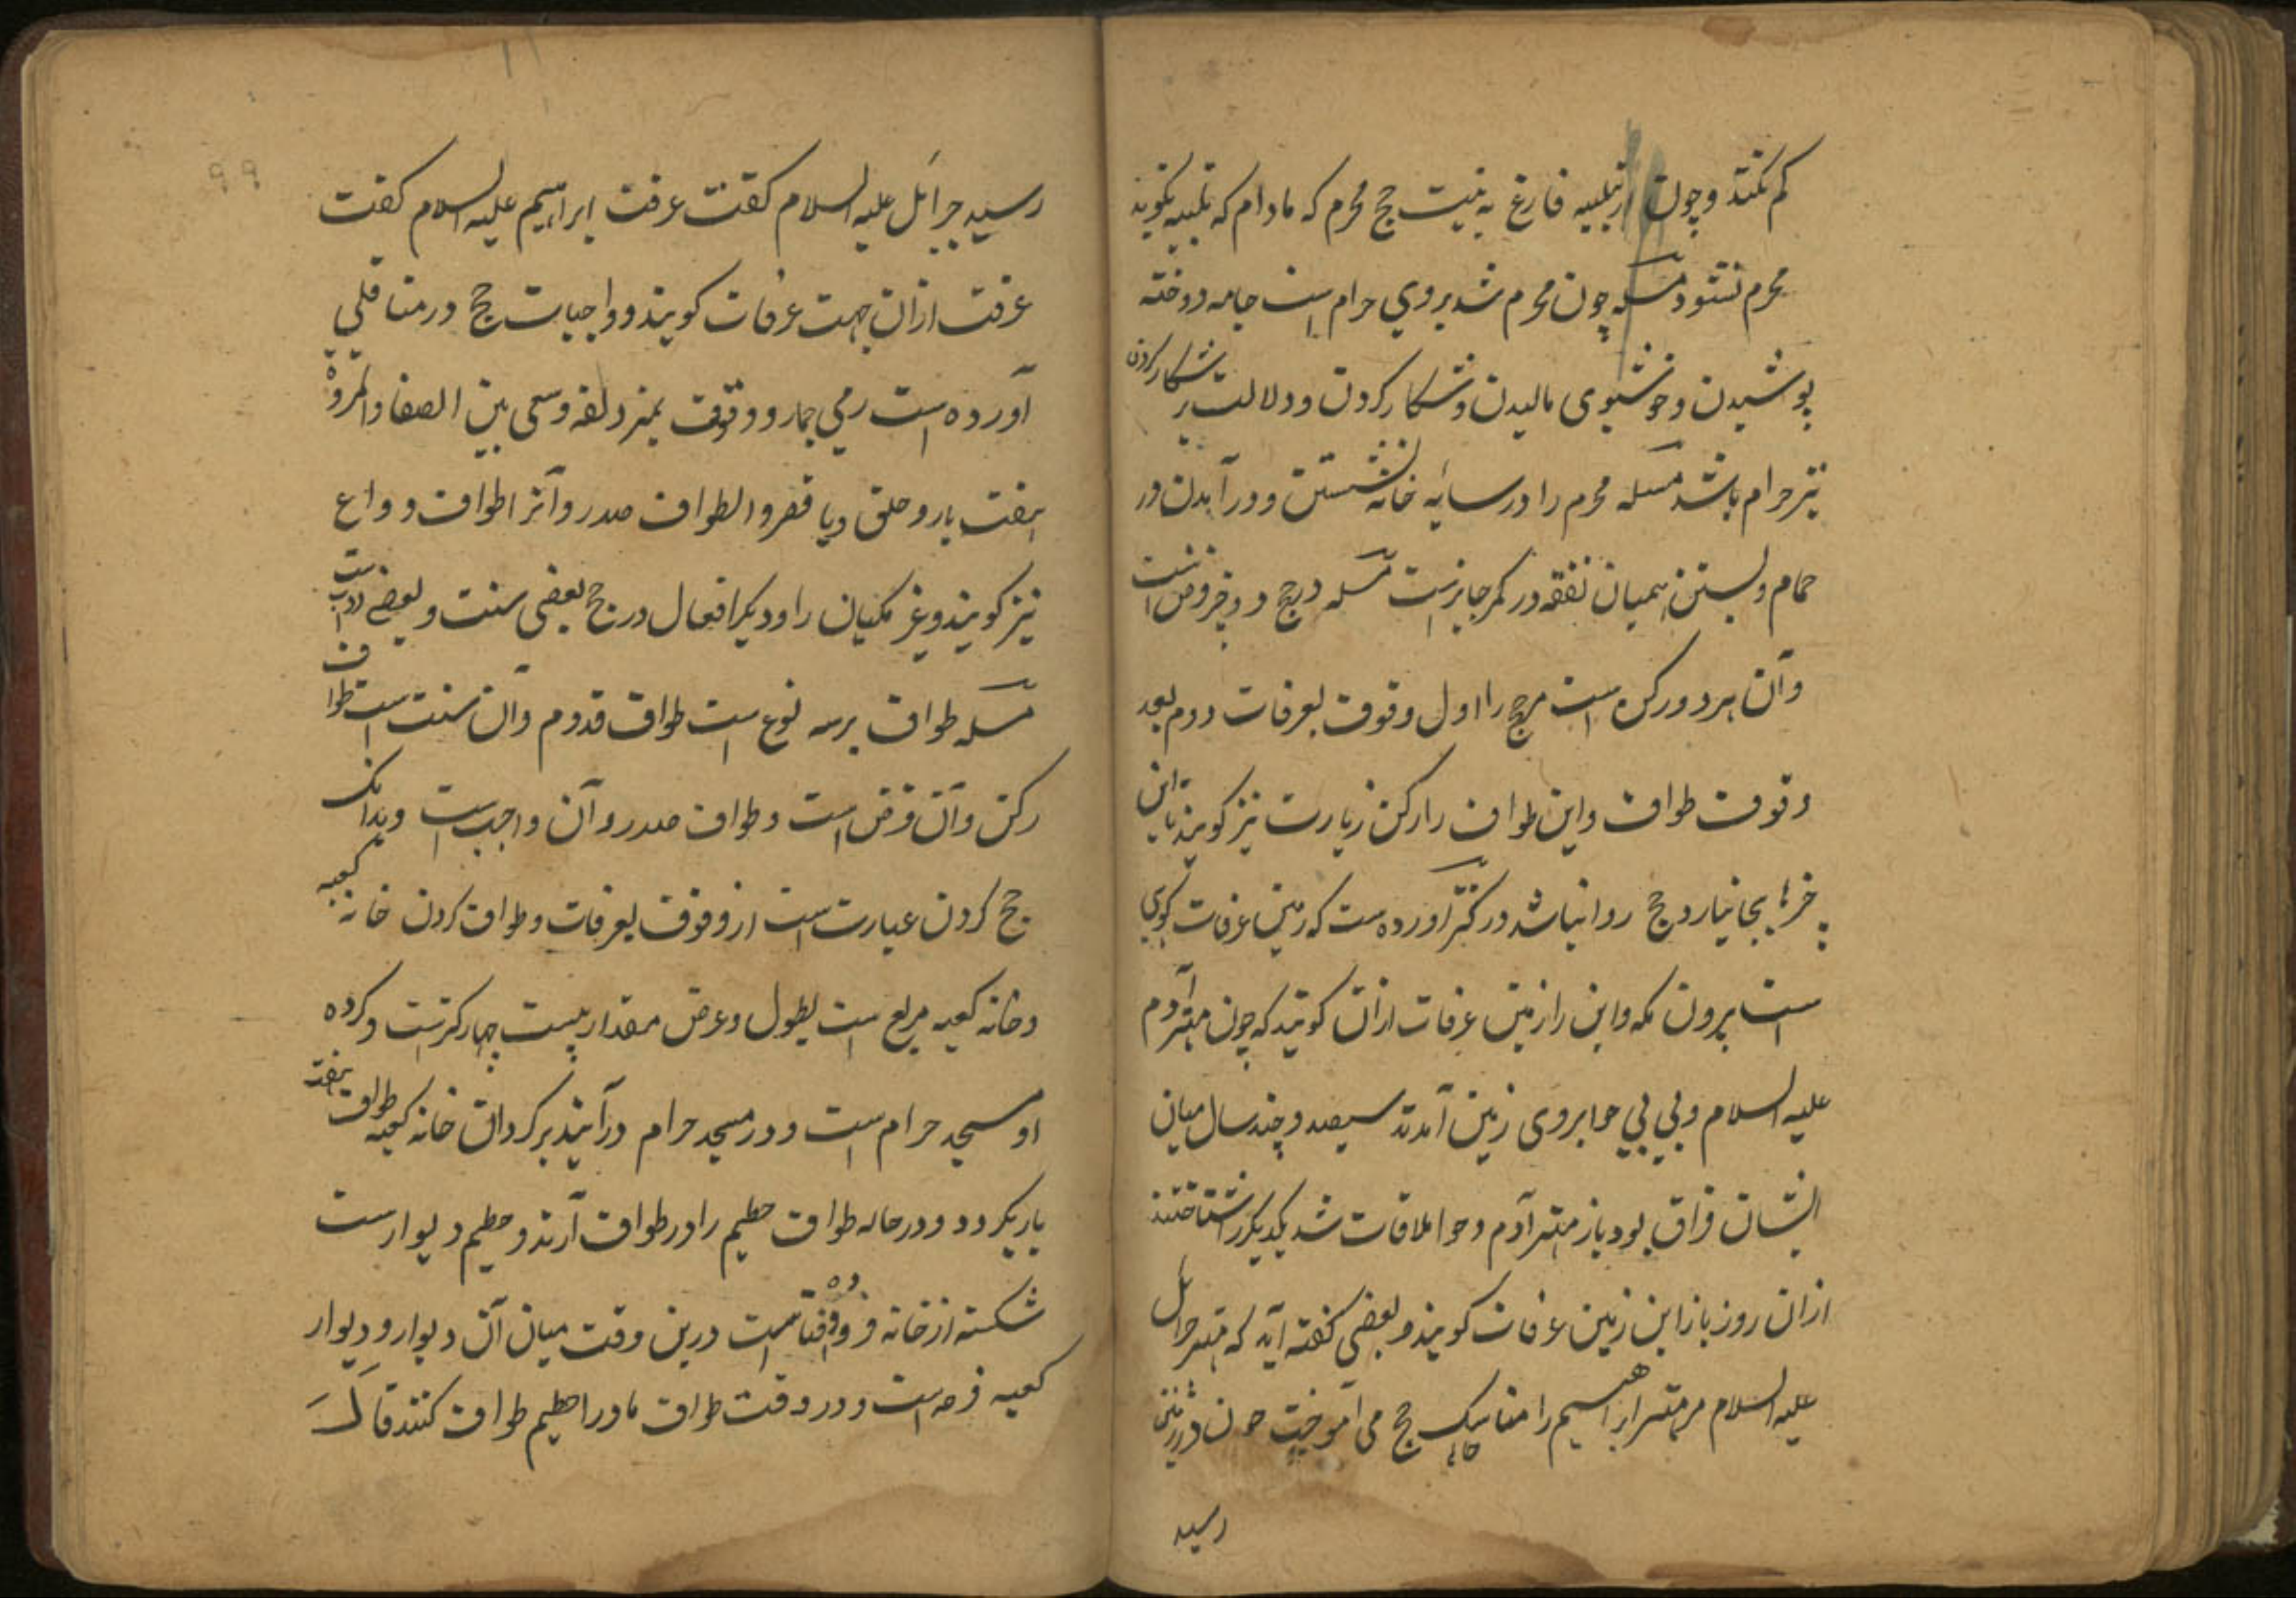 کم نکند و چون از تلبیه فارغ به نیت حج محرم که مادام که تلبیه نکوید
محرم نشود مسله چون محرم شد بروی حرام است جامه دوخته
پوشیدن و خوشبوی مالیدن و شکار کردن و دلالت بر شکار کردن
نیز حرام باشد مسله محرم را در سایه خانه نشستن و در آمدن در
حمام و بستن همیان نفقه در کمر جایز است مسله در حج دو چیز فرض است
و آن هر دو رکن است مر حج را اول وقوف بعرفات دوم بعد
وقوف طواف و این طواف را رکن زیارت نیز کویند تا این
چیزها بجا نیارد حج روا نباشد در کنز آورده ست که زمین عرفات کوی
است برون مکه و این را زمین عرفات ازان کویند که چون مهتر آدم
علیه السلام و بی بی حوا بروی زمین آمدند سیصد و چند سال میان
ایشان فراق بود باز مهتر آدم و حوا ملاقات شد یکدیکر را شناختند
ازان روز باز این زمین عرفات کویند و بعضی کفته اند که مهتر جبرائل
علیه السلام مر مهتر ابراهیم را مناسک حج می آموخت چون در زمین
رسید
99
رسید جبرائل علیه السلام کفت عرفت ابراهیم علیه السلام کفت
عرفت ازان جهت عرفات کویند و واجبات حج در متافقی
آورده است رمی جمار و وقوف بمزدلفه و سعی بین الصفا والمروة
هفت بار و حلق و یا قصر و الطواف صدر و آنرا طواف وداع
نیز کویند و غیر مکیان را و دیکر افعال در حج بعضی سنت و بعضی ادب است
مسله طواف بر سه نوع است طواف قدوم و آن سنت است طواف
رکن و آن فرض است و طواف صدر و آن واجب است و بدانک
حج کردن عبارت است از وقوف بعرفات و طواف کردن خانه کعبه
و خانه کعبه مربع است بطول و عرض مقدار بیست چهار کز است و کرده
او مسجد حرام است و در مسجد حرام در آیند بر کردان خانه کعبه طواف هفت
بار بکردد و در حاله طواف حطیم را در طواف آرند و حطیم دیوارست
شکسته از خانه فرود افتاده است درین وقت میان آن دیوار و دیوار
کعبه فرجه است و در وقت طواف ماورا حطیم طواف کنند قال